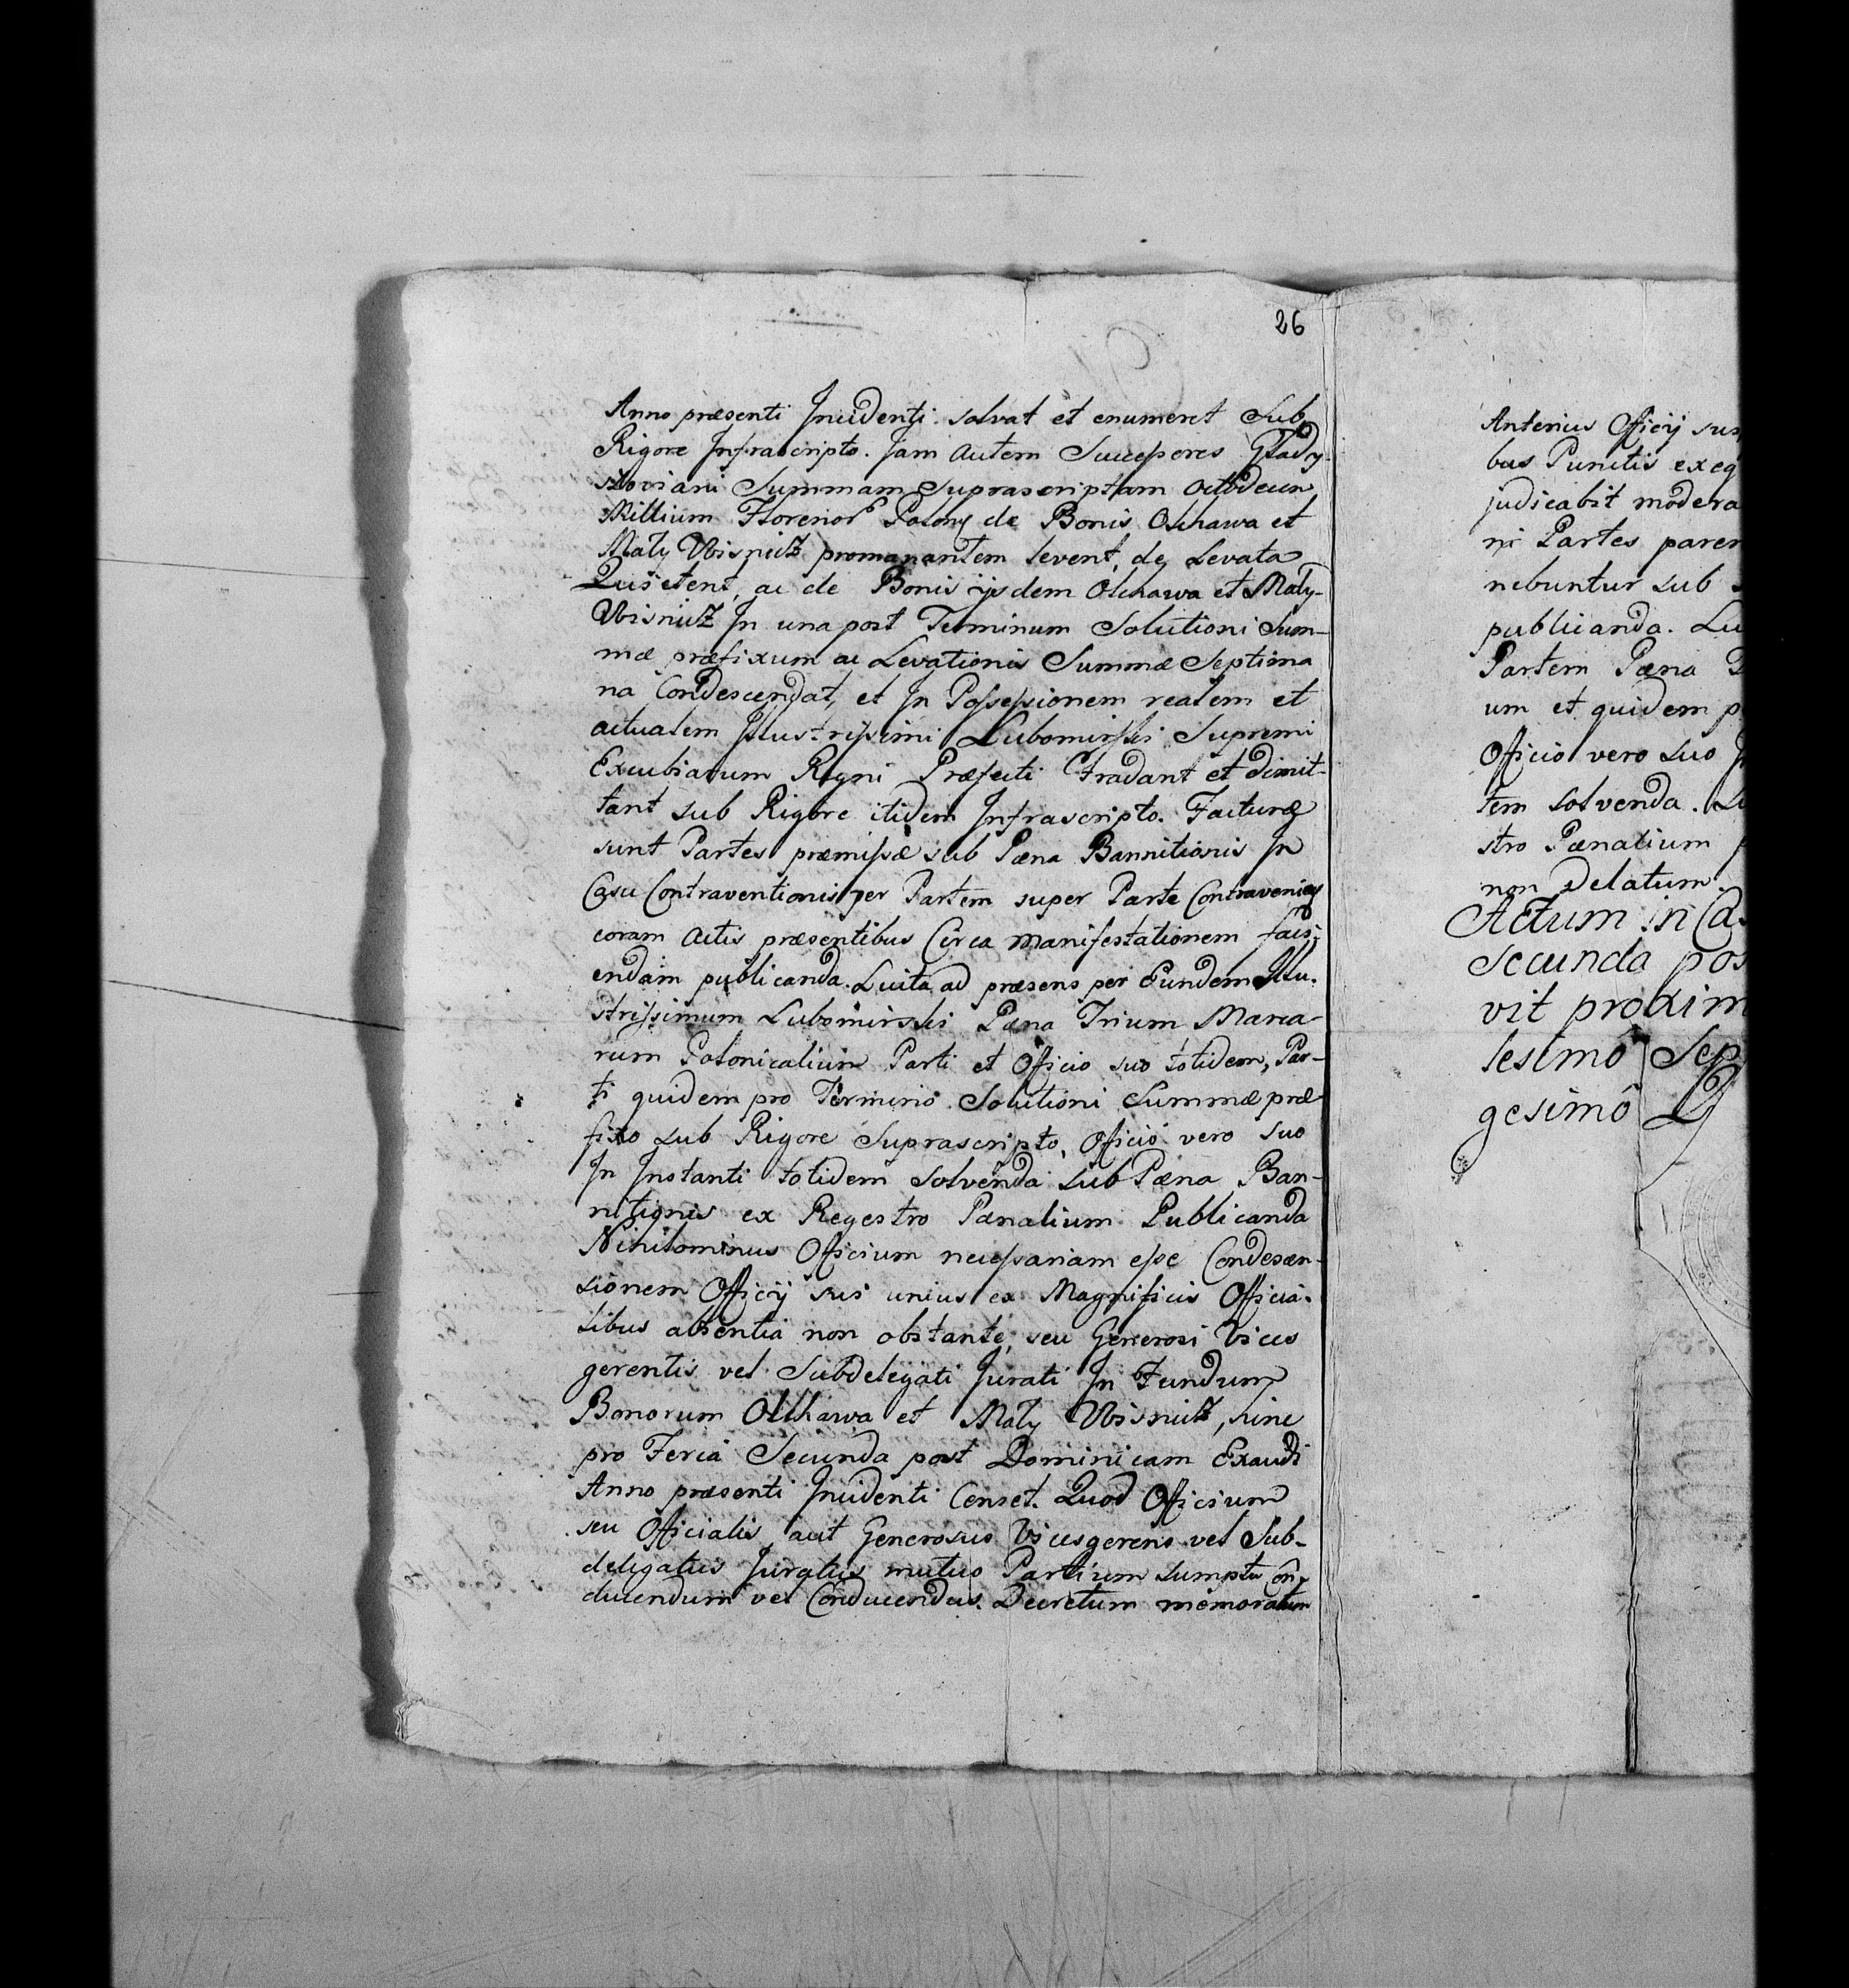 26
Anno præsenti Incidenti solvat et enumeret sub
Rigore Infrascripto. Jam autem Successores Głady-
szoviani Summam Suprascriptam Octodecim
Millium Florenor Polony de Bonis Olchawa et
Mały Wisnicz promanantem levent, de Levata
Quietent, ac de Bonis ijsdem Olchawa et Mały-
Wisnicz In una post Terminum Solutioni Sum-
mæ præfixum ac Levationis Summæ Septima
na Condescendat, et In Possessionem realem et
actualem Illustrissimi Lubomirski Supremi
Excubiarum Regni Præfecti Tradant et dimit-
tant sub Rigore itidem Infrascripto. Facturæ
sunt Partes præmissæ sub Pæna Bannitionis In
Casu Contraventionis per Partem super Parte Contravenien
coram Actis præsentibus Circa Manifestationem faci-
endam publicanda. Luita ad præsens per Eundem Illu-
strissimum Lubomirski Pæna Trium Marca-
rum Polonicalium Parti et Officio suo totidem, Par-
ti quidem pro Termino Solutioni Summæ præ
fixo sub Rigore Suprascripto, Officio vero suo
In Instanti totidem solvenda sub Pæna Ban-
nitionis ex Regestro Pænalium Publicanda
Nihilominus Officium necessariam esse Condescen-
sionem Officij sui unius ex Magnificis Officia-
libus absentia non obstante, seu Generosi Vices
gerentis vel Subdelegati Jurati In Fundum
Bonorum Olchawa et Mały Wisnicz, hinc
pro Feria Secunda post Dominicam Exaudi
Anno præsenti Incidenti Censet. Quod Officium
seu Officialis aut Generosus Vicesgerens vel Sub-
delegatus Juratus mutuo Partium sumptu Con-
ducendum vel Conducendus. Decretum memoratum
Anterius Officij sui
bus Punctis exeq
judicabit modera
ni Partes paren
nebuntur sub
publicanda. Lu
Partem Pæna
um et quidem p
Officio vero suo In
tem solvenda. Lu
stro Pænalium
non delatum.
Actum in Cas
secunda pos
vit proxim
lesimô Sep
gesimô